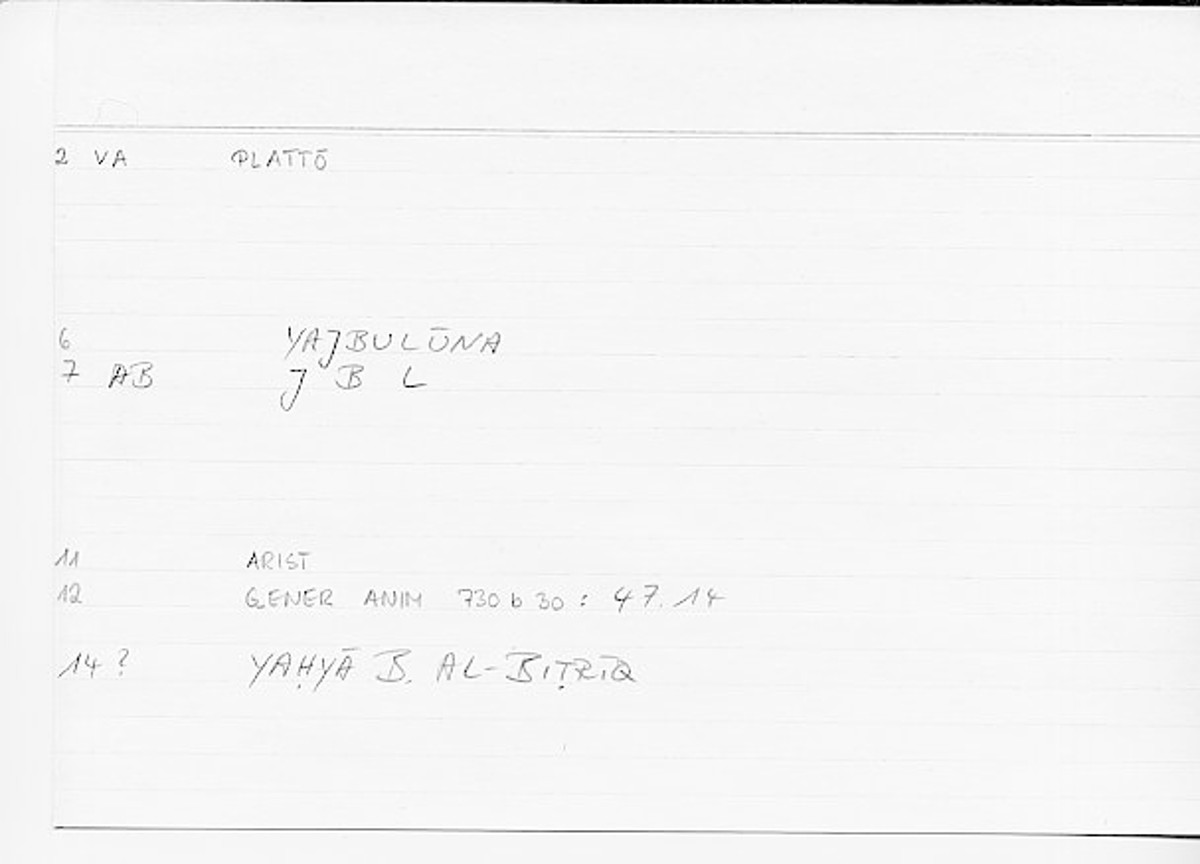 2 VA PLATTŌ
6 YAJBULŪNA
7 AB J B L
11 ARIST
12 GENER ANIM 730 b 30 : 47.14
14 ? YAḤYĀ B. AL-BIṬRĪQ